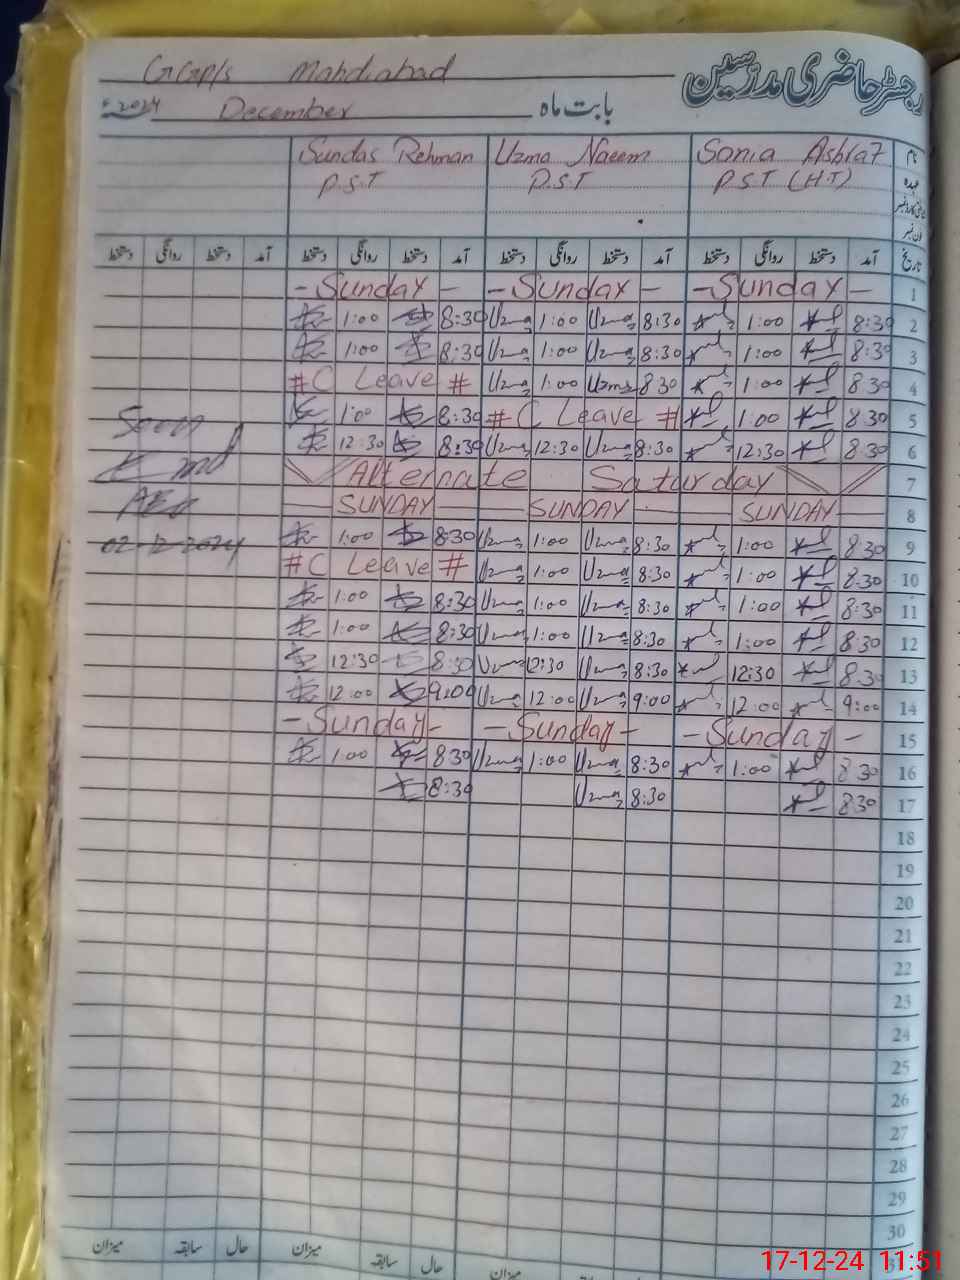 رجسٹر حاضری مدرسین
GGP/S Mahdiabad
بابت ماہ December 2024ء
نام Sonia Ashraf Uzma Naeem Sundas Rehman
عہدہ P.S.T (H.T) P.S.T P.S.T
تاریخ آمد دستخط روانگی دستخط آمد دستخط روانگی دستخط آمد دستخط روانگی دستخط آمد دستخط روانگی دستخط
1 - Sunday - - Sunday - - Sunday -
2 8:30 1:00 8:30 Uzma 1:00 Uzma 8:30 1:00
3 8:30 1:00 8:30 Uzma 1:00 Uzma 8:30 1:00
4 8.30 1:00 8 30 Uzma 1:00 Uzma # C Leave #
5 8.30 1:00 # C Leave # 8:30 1:00
6 8.30 12:30 8:30 Uzma 12:30 Uzma 8:30 12:30
7 Alternate Saturday
8 SUNDAY SUNDAY SUNDAY
9 8:30 1:00 8:30 Uzma 1:00 Uzma 8:30 1:00
10 8.30 1:00 8:30 Uzma 1:00 Uzma # C Leave #
11 8:30 1:00 8:30 Uzma 1:00 Uzma 8:30 1:00
12 8:30 1:00 8:30 Uzma 1:00 Uzma 8:30 1:00
13 8.30 12:30 8:30 Uzma 12:30 Uzma 8:30 12:30
14 9:00 12:00 9:00 Uzma 12:00 Uzma 9:00 12:00
15 - Sunday - - Sunday - - Sunday -
16 8 30 1:00 8:30 Uzma 1:00 Uzma 8 30 1:00
17 8 30 8:30 Uzma 8:30
18
19
20
21
22
23
24
25
26
27
28
29
30
31
AEO
02-12-2024
میزان سابقہ حال میزان سابقہ حال میزان
17-12-24 11:51